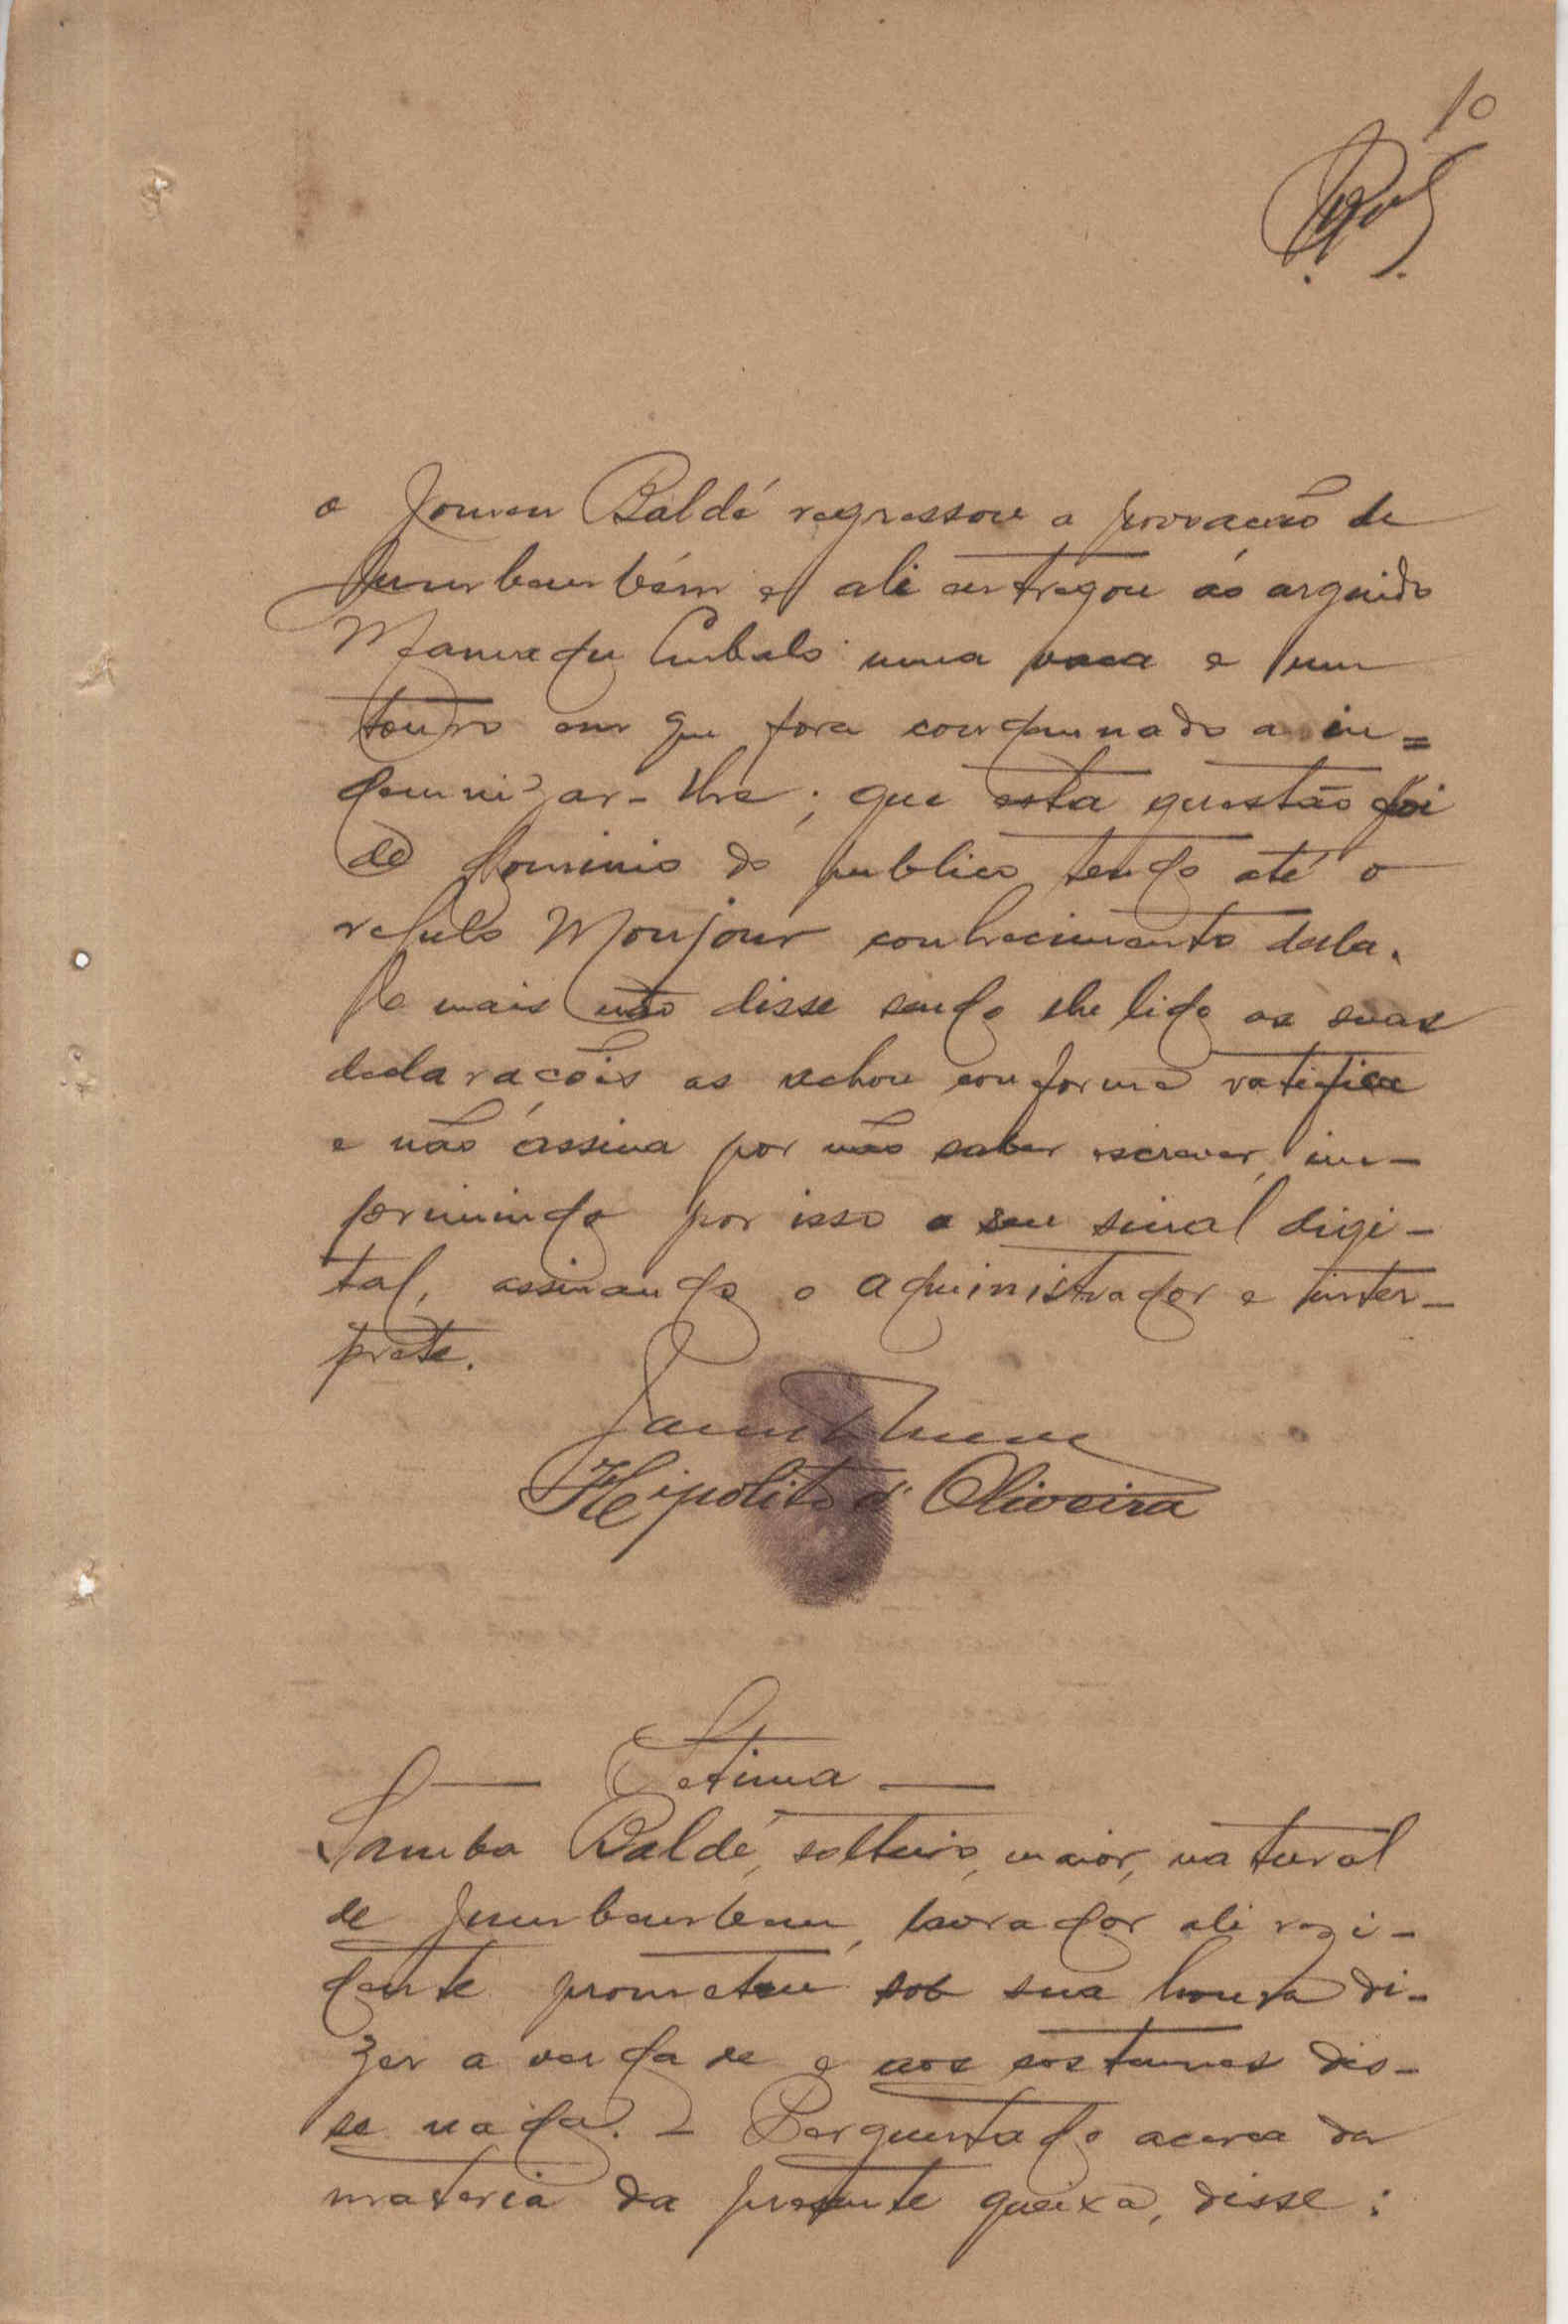 10
o Jouneu Baldé regressou a povoacão de
Jumbembém e ali entregou ao arguido
Mamadu Embalo uma vaca e um
touro em que fora condemnado a in=
demnizar-lhe; que esta questão foi
do dominio do publico tendo até o
regulo Monjour conhecimento dela.
E mais não disse sendo lhe lido as suas
declaracões as achou conforme ratifica
e não assina por não saber escrever, im-
primindo por isso o seu sinal digi-
tal, assinando o administrador e inter-
prete.
Hipolito d'Oliveira
Setima
Samba Baldé, solteiro, maior, natural
de Jumbembem, lavrador ali rezi-
dente prometeu sob sua honra di-
zer a verdade e aos costumes dis-
se nada. - Perguntado acerca da
materia da presente queixa, disse: